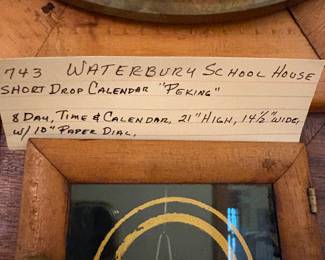 743 WATERBURY SCHOOL HOUSE
SHORT DROP CALENDAR "PEKING"
8 DAY, TIME & CALENDAR, 21" HIGH, 14½" WIDE,
W/ 10" PAPER DIAL.